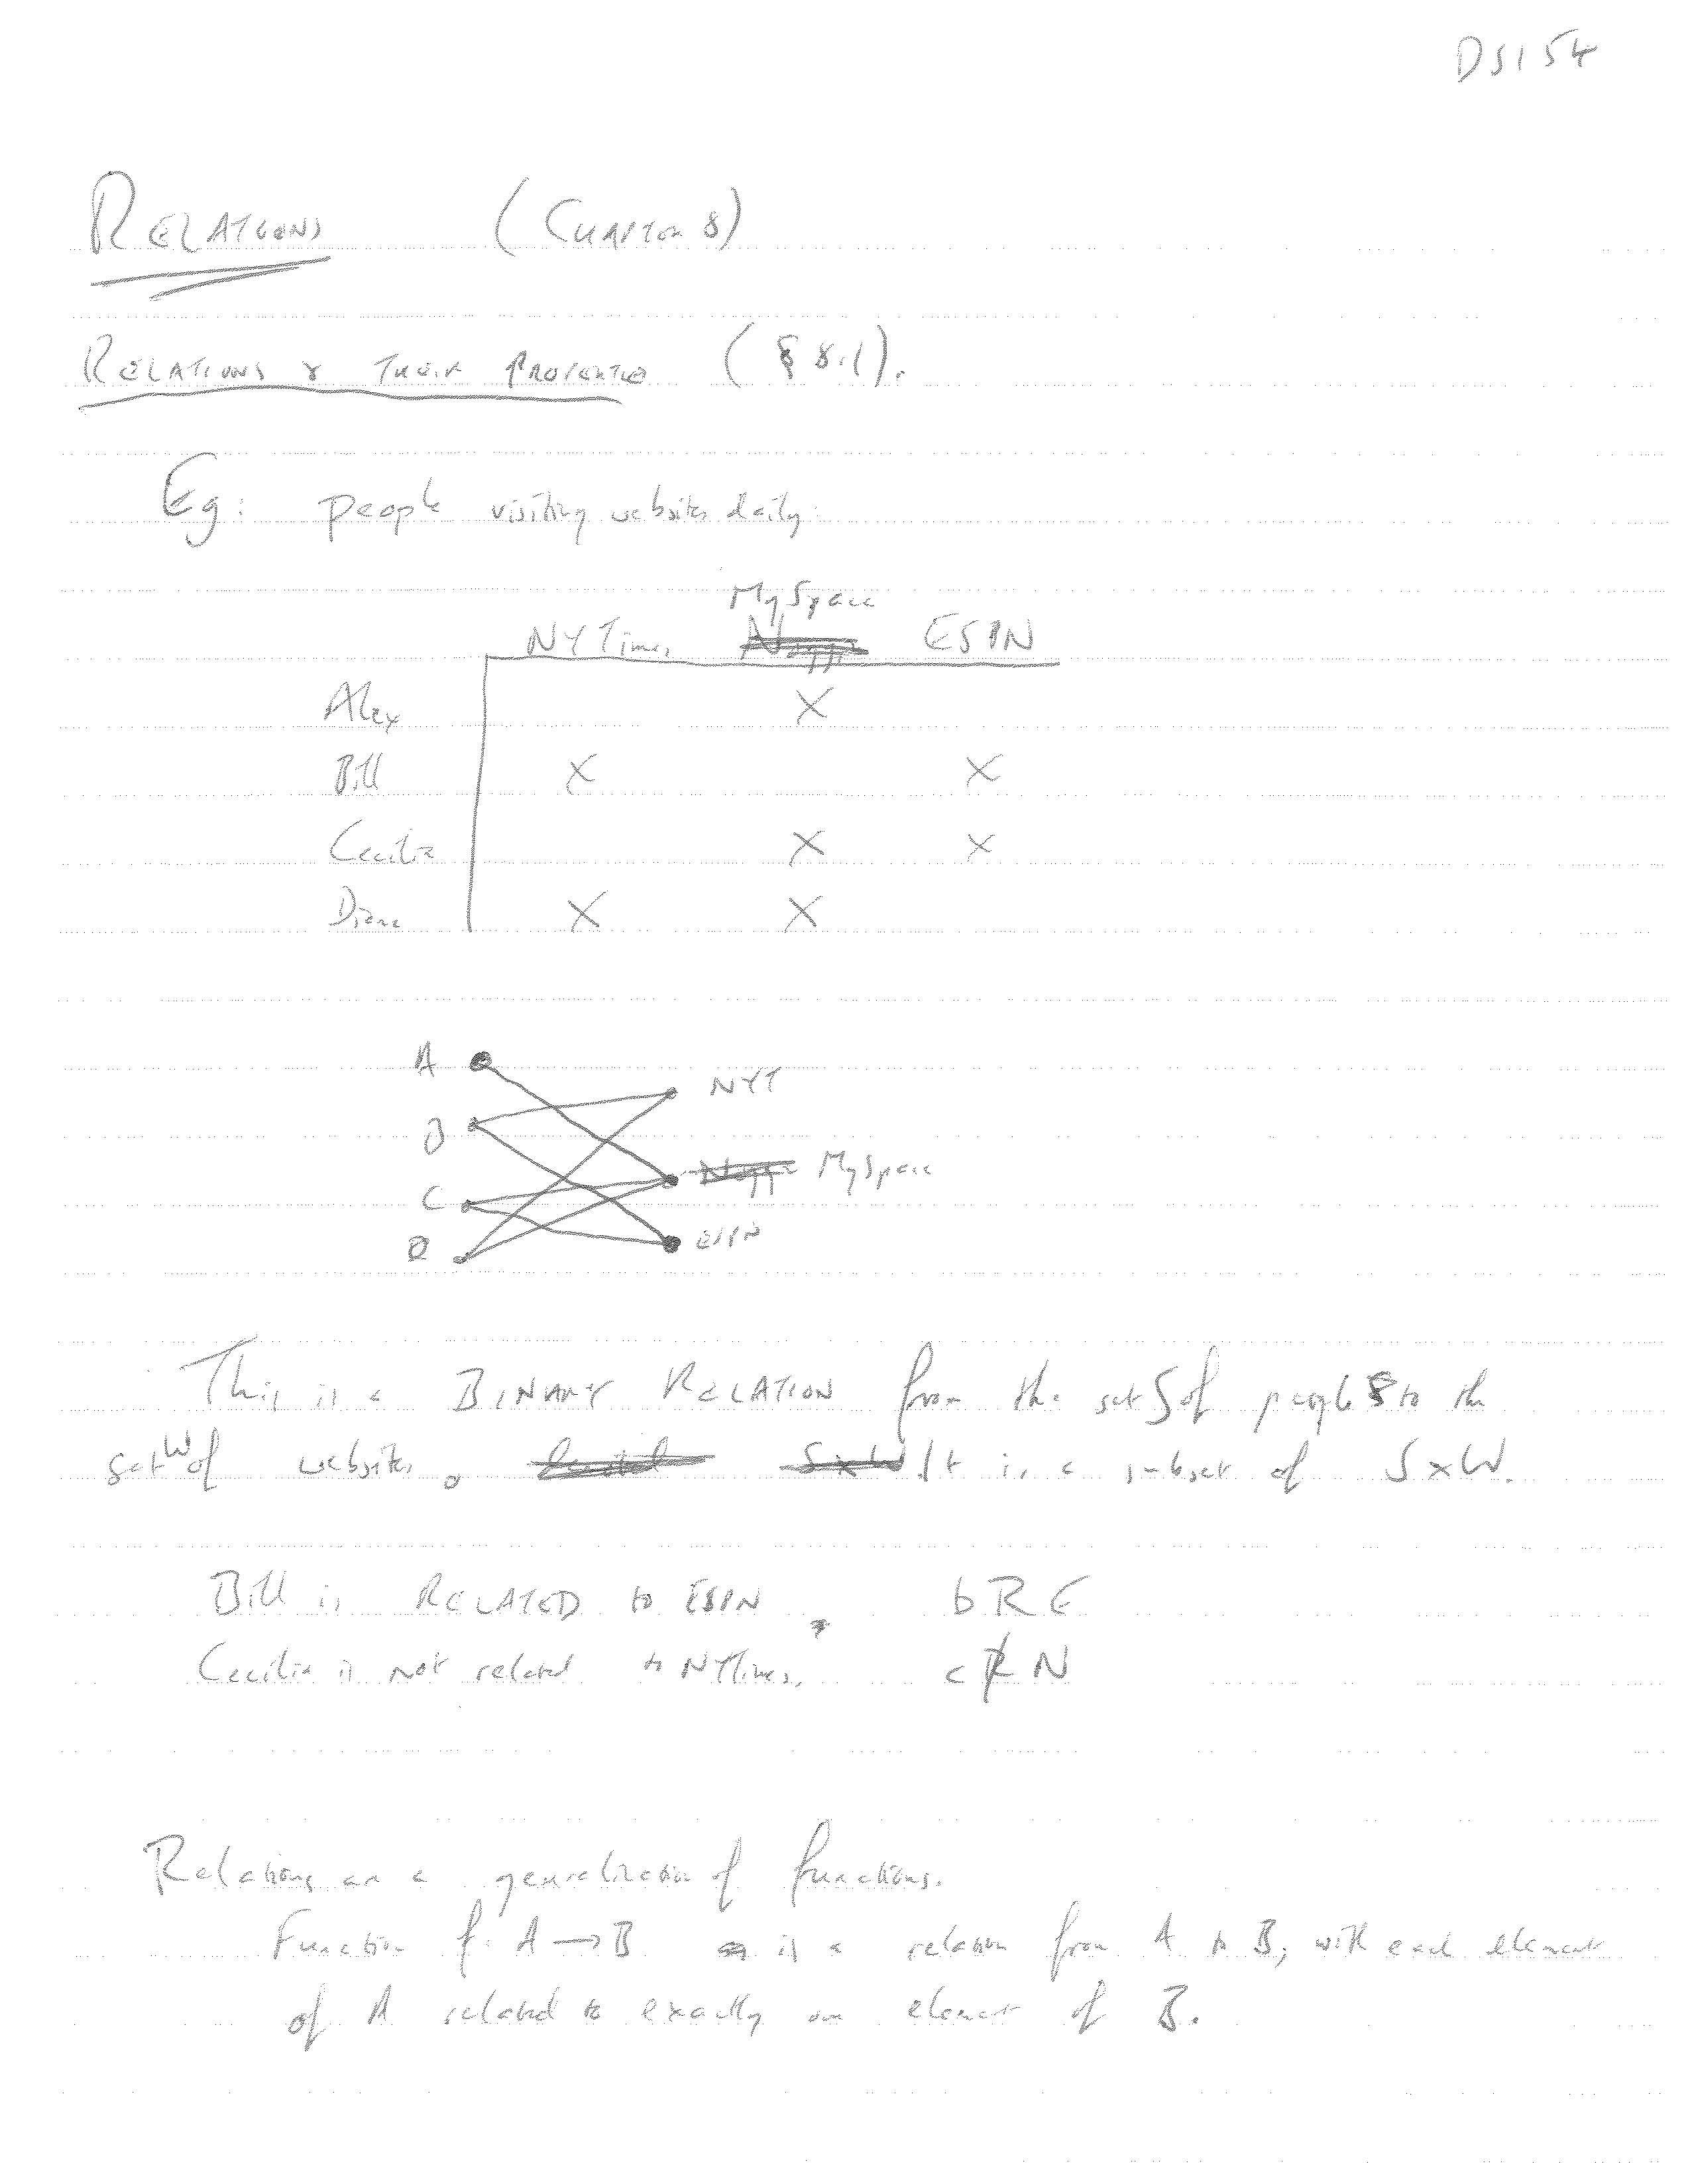 DS154
RELATIONS (CHAPTER 8)
RELATIONS & THEIR PROPERTIES (§ 8.1).
Eg: people visiting websites daily:
MySpace
NYTimes ESPN
Alex X
Bill X X
Cecilia X X
Diana X X
A
NYT
B
MySpace
C
ESPN
D
This is a BINARY RELATION from the set S of people to the
set W of websites. It is a subset of S x W.
Bill is RELATED to ESPN, b R E
Cecilia is not related to NYTimes. c R̸ N
Relations are a generalization of functions.
Function f: A → B is a relation from A to B, with each element
of A related to exactly one element of B.